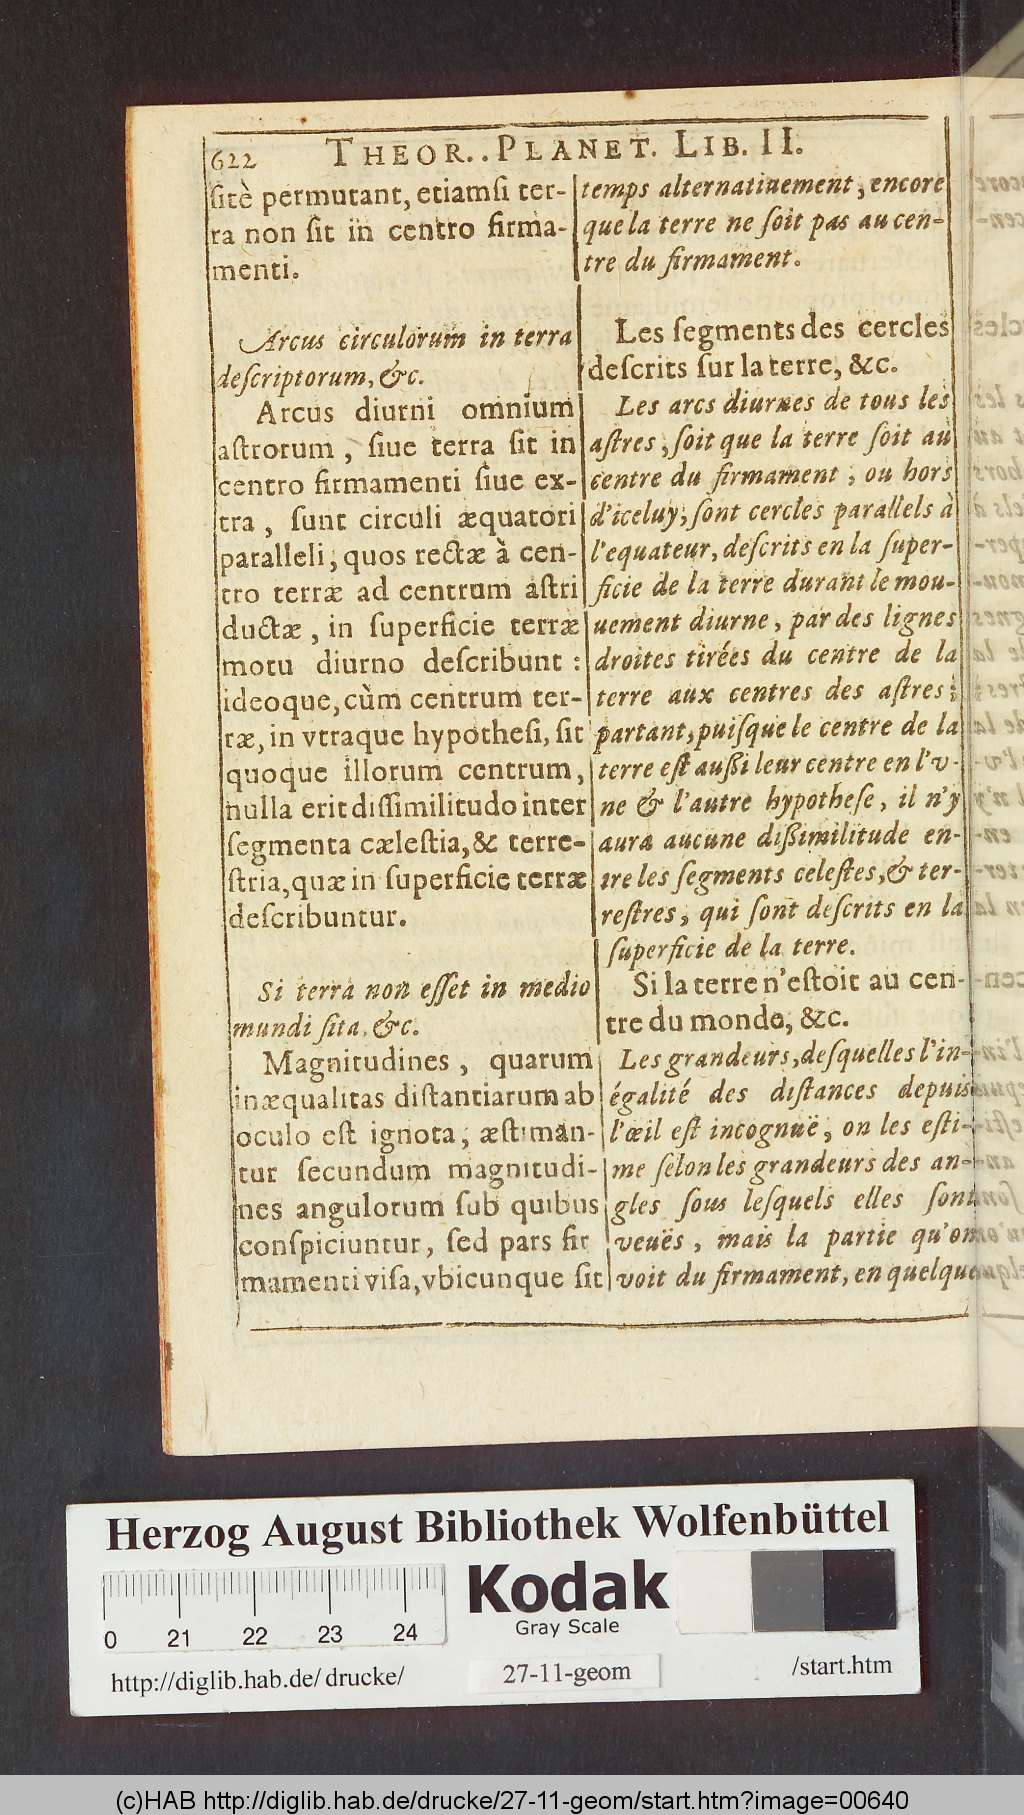 622 THEOR.. PLANET. LIB. II.
ſitè permutant, etiamſi ter-
ra non ſit in centro firma-
menti.
Arcus circulorum in terra
deſcriptorum, &c.
Arcus diurni omnium
aſtrorum, ſiue terra ſit in
centro firmamenti ſiue ex-
tra, ſunt circuli æquatori
paralleli, quos rectæ à cen-
tro terræ ad centrum aſtri
ductæ, in ſuperficie terræ
motu diurno deſcribunt:
ideoque, cùm centrum ter-
ræ, in vtraque hypotheſi, ſit
quoque illorum centrum,
nulla erit diſſimilitudo inter
ſegmenta cæleſtia, & terre-
ſtria, quæ in ſuperficie terræ
deſcribuntur.
Si terra non eſſet in medio
mundi ſita, &c.
Magnitudines, quarum
inæqualitas diſtantiarum ab
oculo eſt ignota, æſtiman-
tur ſecundum magnitudi-
nes angulorum ſub quibus
conſpiciuntur, ſed pars fir
mamenti viſa, vbicunque ſit
temps alternatiuement, encore
que la terre ne ſoit pas au cen-
tre du firmament.
Les ſegments des cercles
deſcrits ſur la terre, &c.
Les arcs diurnes de tous les
aſtres, ſoit que la terre ſoit au
centre du firmament, ou hors
d'iceluy, ſont cercles parallels à
l'equateur, deſcrits en la ſuper-
ficie de la terre durant le mou-
uement diurne, par des lignes
droites tirées du centre de la
terre aux centres des aſtres;
partant, puiſque le centre de la
terre eſt auſſi leur centre en l'v-
ne & l'autre hypotheſe, il n'y
aura aucune diſſimilitude en-
tre les ſegments celeſtes, & ter-
reſtres, qui ſont deſcrits en la
ſuperficie de la terre.
Si la terre n'eſtoit au cen-
tre du monde, &c.
Les grandeurs, deſquelles l'in-
égalité des diſtances depuis
l'œil eſt incognuë, on les eſti-
me ſelon les grandeurs des an-
gles ſous leſquels elles ſont
veuës, mais la partie qu'on
voit du firmament, en quelque
Herzog August Bibliothek Wolfenbüttel
Kodak
Gray Scale
0 21 22 23 24
http://diglib.hab.de/drucke/ 27-11-geom /start.htm
(c)HAB http://diglib.hab.de/drucke/27-11-geom/start.htm?image=00640